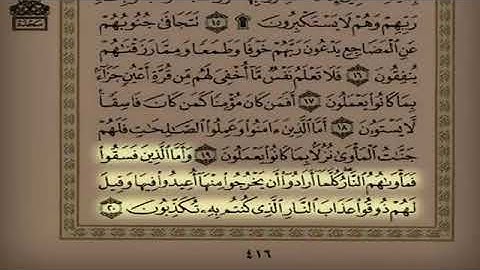 رَبِّهِمْ وَهُمْ لَا يَسْتَكْبِرُونَ ۩ ١٥ تَتَجَافَىٰ جُنُوبُهُمْ
عَنِ ٱلْمَضَاجِعِ يَدْعُونَ رَبَّهُمْ خَوْفًا وَطَمَعًا وَمِمَّا رَزَقْنَٰهُمْ
يُنفِقُونَ ١٦ فَلَا تَعْلَمُ نَفْسٌ مَّآ أُخْفِىَ لَهُم مِّن قُرَّةِ أَعْيُنٍ جَزَآءًۢ
بِمَا كَانُوا۟ يَعْمَلُونَ ١٧ أَفَمَن كَانَ مُؤْمِنًا كَمَن كَانَ فَاسِقًا
لَّا يَسْتَوُۥنَ ١٨ أَمَّا ٱلَّذِينَ ءَامَنُوا۟ وَعَمِلُوا۟ ٱلصَّٰلِحَٰتِ فَلَهُمْ
جَنَّٰتُ ٱلْمَأْوَىٰ نُزُلًۢا بِمَا كَانُوا۟ يَعْمَلُونَ ١٩ وَأَمَّا ٱلَّذِينَ فَسَقُوا۟
فَمَأْوَىٰهُمُ ٱلنَّارُ كُلَّمَآ أَرَادُوٓا۟ أَن يَخْرُجُوا۟ مِنْهَآ أُعِيدُوا۟ فِيهَا وَقِيلَ
لَهُمْ ذُوقُوا۟ عَذَابَ ٱلنَّارِ ٱلَّذِى كُنتُم بِهِۦ تُكَذِّبُونَ ٢٠
٤١٦